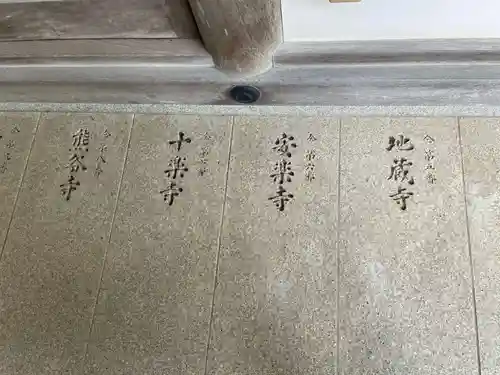 仝第五番
地蔵寺
仝第六番
安楽寺
仝第七番
十楽寺
仝第八番
熊谷寺